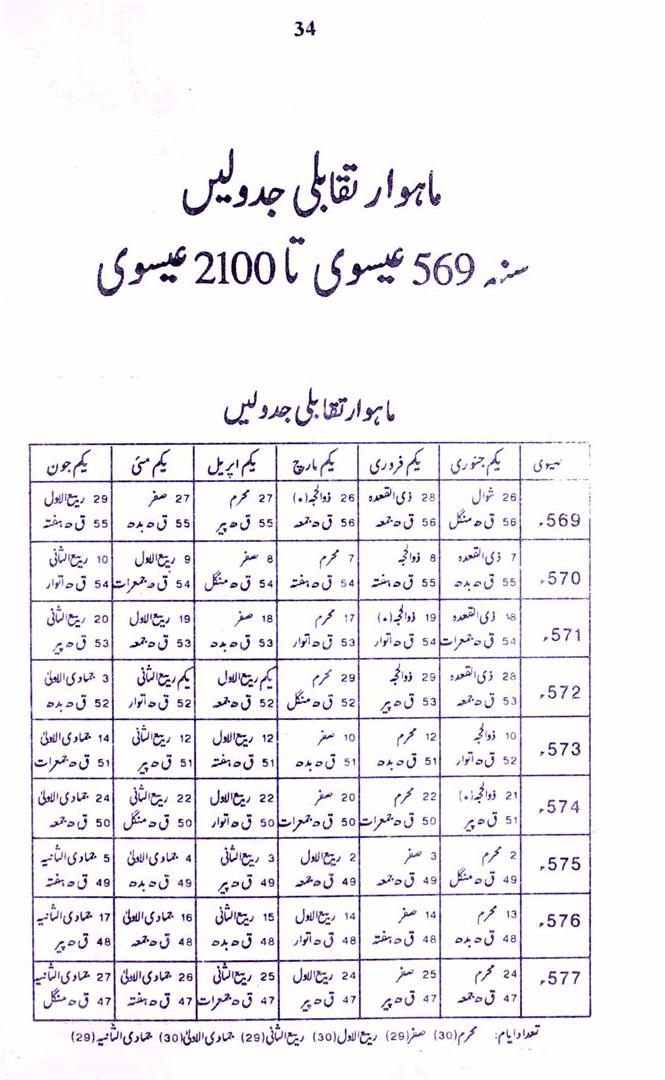 34
ماہوار تقابلی جدولیں
سنہ 569 عیسوی تا 2100 عیسوی
ماہوار تقابلی جدولیں
عیسوی یکم جنوری یکم فروری یکم مارچ یکم اپریل یکم مئی یکم جون
569ء 26 شوال 28 ذی القعدہ 26 ذوالحجہ (٭) 27 محرم 27 صفر 29 ربیع الاول
56 ق ھ منگل 56 ق ھ جمعہ 56 ق ھ جمعہ 55 ق ھ پیر 55 ق ھ بدھ 55 ق ھ ہفتہ
570ء 7 ذی القعدہ 8 ذوالحجہ 7 محرم 8 صفر 9 ربیع الاول 10 ربیع الثانی
55 ق ھ بدھ 55 ق ھ ہفتہ 54 ق ھ ہفتہ 54 ق ھ منگل 54 ق ھ جمعرات 54 ق ھ اتوار
571ء 18 ذی القعدہ 19 ذوالحجہ (٭) 17 محرم 18 صفر 19 ربیع الاول 20 ربیع الثانی
54 ق ھ جمعرات 54 ق ھ اتوار 53 ق ھ اتوار 53 ق ھ بدھ 53 ق ھ جمعہ 53 ق ھ پیر
572ء 28 ذی القعدہ 29 ذوالحجہ 29 محرم یکم ربیع الاول یکم ربیع الثانی 3 جمادی الاولیٰ
53 ق ھ جمعہ 53 ق ھ پیر 52 ق ھ منگل 52 ق ھ جمعہ 52 ق ھ اتوار 52 ق ھ بدھ
573ء 10 ذوالحجہ 12 محرم 10 صفر 12 ربیع الاول 12 ربیع الثانی 14 جمادی الاولیٰ
52 ق ھ اتوار 51 ق ھ بدھ 51 ق ھ بدھ 51 ق ھ ہفتہ 51 ق ھ پیر 51 ق ھ جمعرات
574ء 21 ذوالحجہ (٭) 22 محرم 20 صفر 22 ربیع الاول 22 ربیع الثانی 24 جمادی الاولیٰ
51 ق ھ پیر 50 ق ھ جمعرات 50 ق ھ جمعرات 50 ق ھ اتوار 50 ق ھ منگل 50 ق ھ جمعہ
575ء 2 محرم 3 صفر 2 ربیع الاول 3 ربیع الثانی 4 جمادی الاولیٰ 5 جمادی الثانیہ
49 ق ھ منگل 49 ق ھ جمعہ 49 ق ھ جمعہ 49 ق ھ پیر 49 ق ھ بدھ 49 ق ھ ہفتہ
576ء 13 محرم 14 صفر 14 ربیع الاول 15 ربیع الثانی 16 جمادی الاولیٰ 17 جمادی الثانیہ
48 ق ھ بدھ 48 ق ھ ہفتہ 48 ق ھ اتوار 48 ق ھ بدھ 48 ق ھ جمعہ 48 ق ھ پیر
577ء 24 محرم 25 صفر 24 ربیع الاول 25 ربیع الثانی 26 جمادی الاولیٰ 27 جمادی الثانیہ
47 ق ھ جمعہ 47 ق ھ پیر 47 ق ھ پیر 47 ق ھ جمعرات 47 ق ھ ہفتہ 47 ق ھ منگل
تعداد ایام: محرم (30) صفر (29) ربیع الاول (30) ربیع الثانی (29) جمادی الاولیٰ (30) جمادی الثانیہ (29)